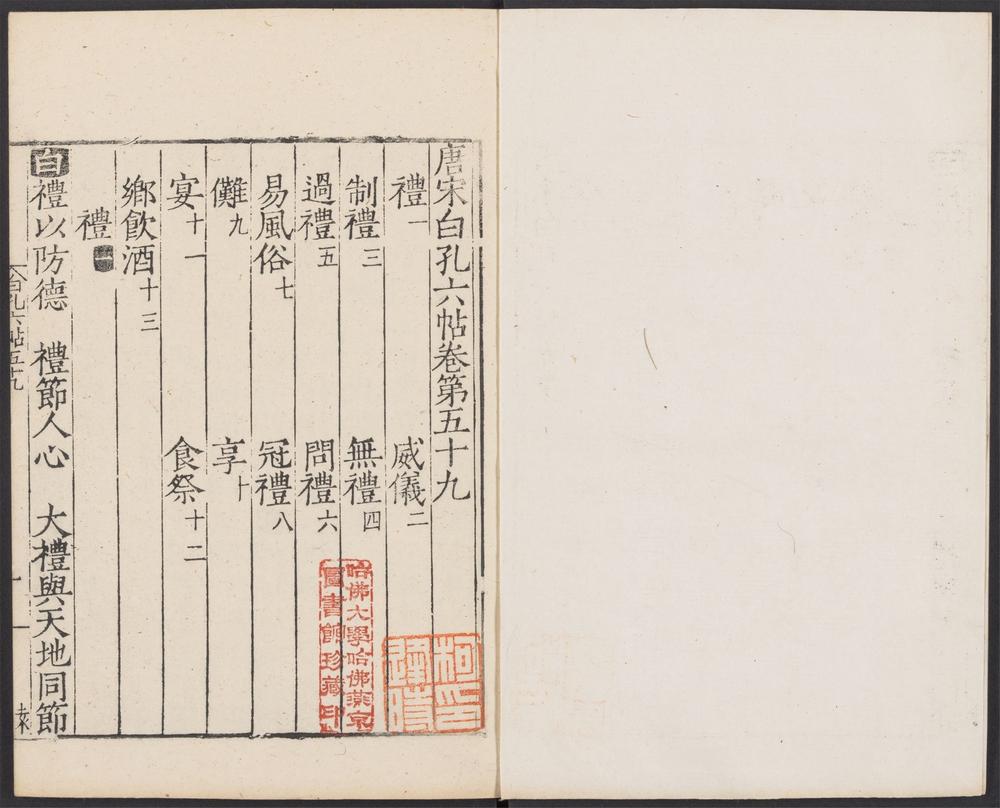 唐宋白孔六帖卷第五十九
禮一 威儀二
制禮三 無禮四
過禮五 問禮六
易風俗七 冠禮八
儺九 享十
宴十一 食祭十二
鄉飲酒十三
禮
白 禮以防德 禮節人心 大禮與天地同節
白孔六帖五十九
一
哈佛大學哈佛燕京
圖書館珍藏印
柯印
逢時